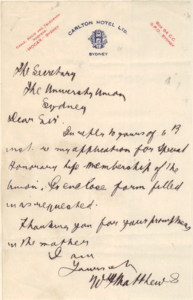 CARLTON HOTEL LTD.
SYDNEY
The Secretary
The University Union
Sydney
Dear Sir.
In reply to yours of 6th
inst re my application for special
Honorary life membership of the
Union. I enclose form filled
in as requested.
Thanking you for your promptness
in the matter
I am
Yours
W. Matthews